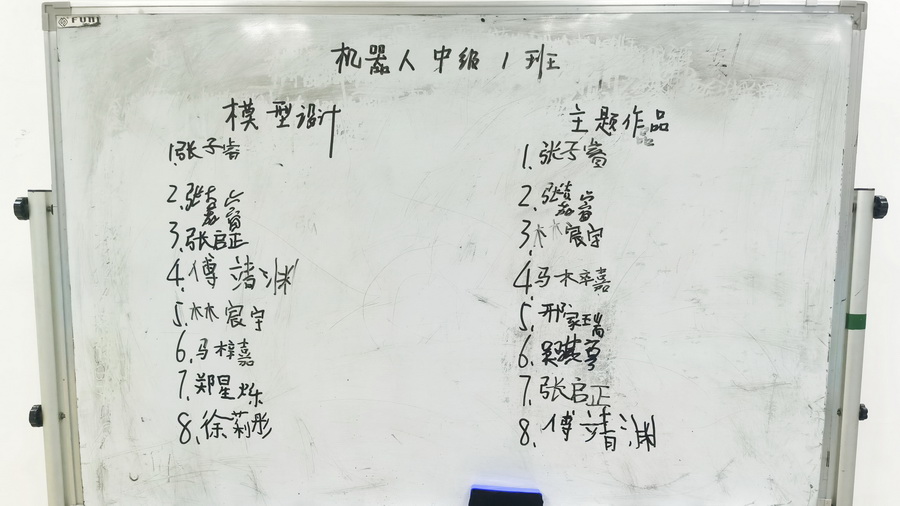 FUNI
机器人中级1班
模型设计
1.张子睿
2.张嘉睿
3.张启正
4.傅靖渊
5.林宸宇
6.马梓嘉
7.郑星烁
8.徐莉彤
主题作品
1.张子睿
2.张嘉睿
3.林宸宇
4.马梓嘉
5.邢家瑞
6.吴祺
7.张启正
8.傅靖渊